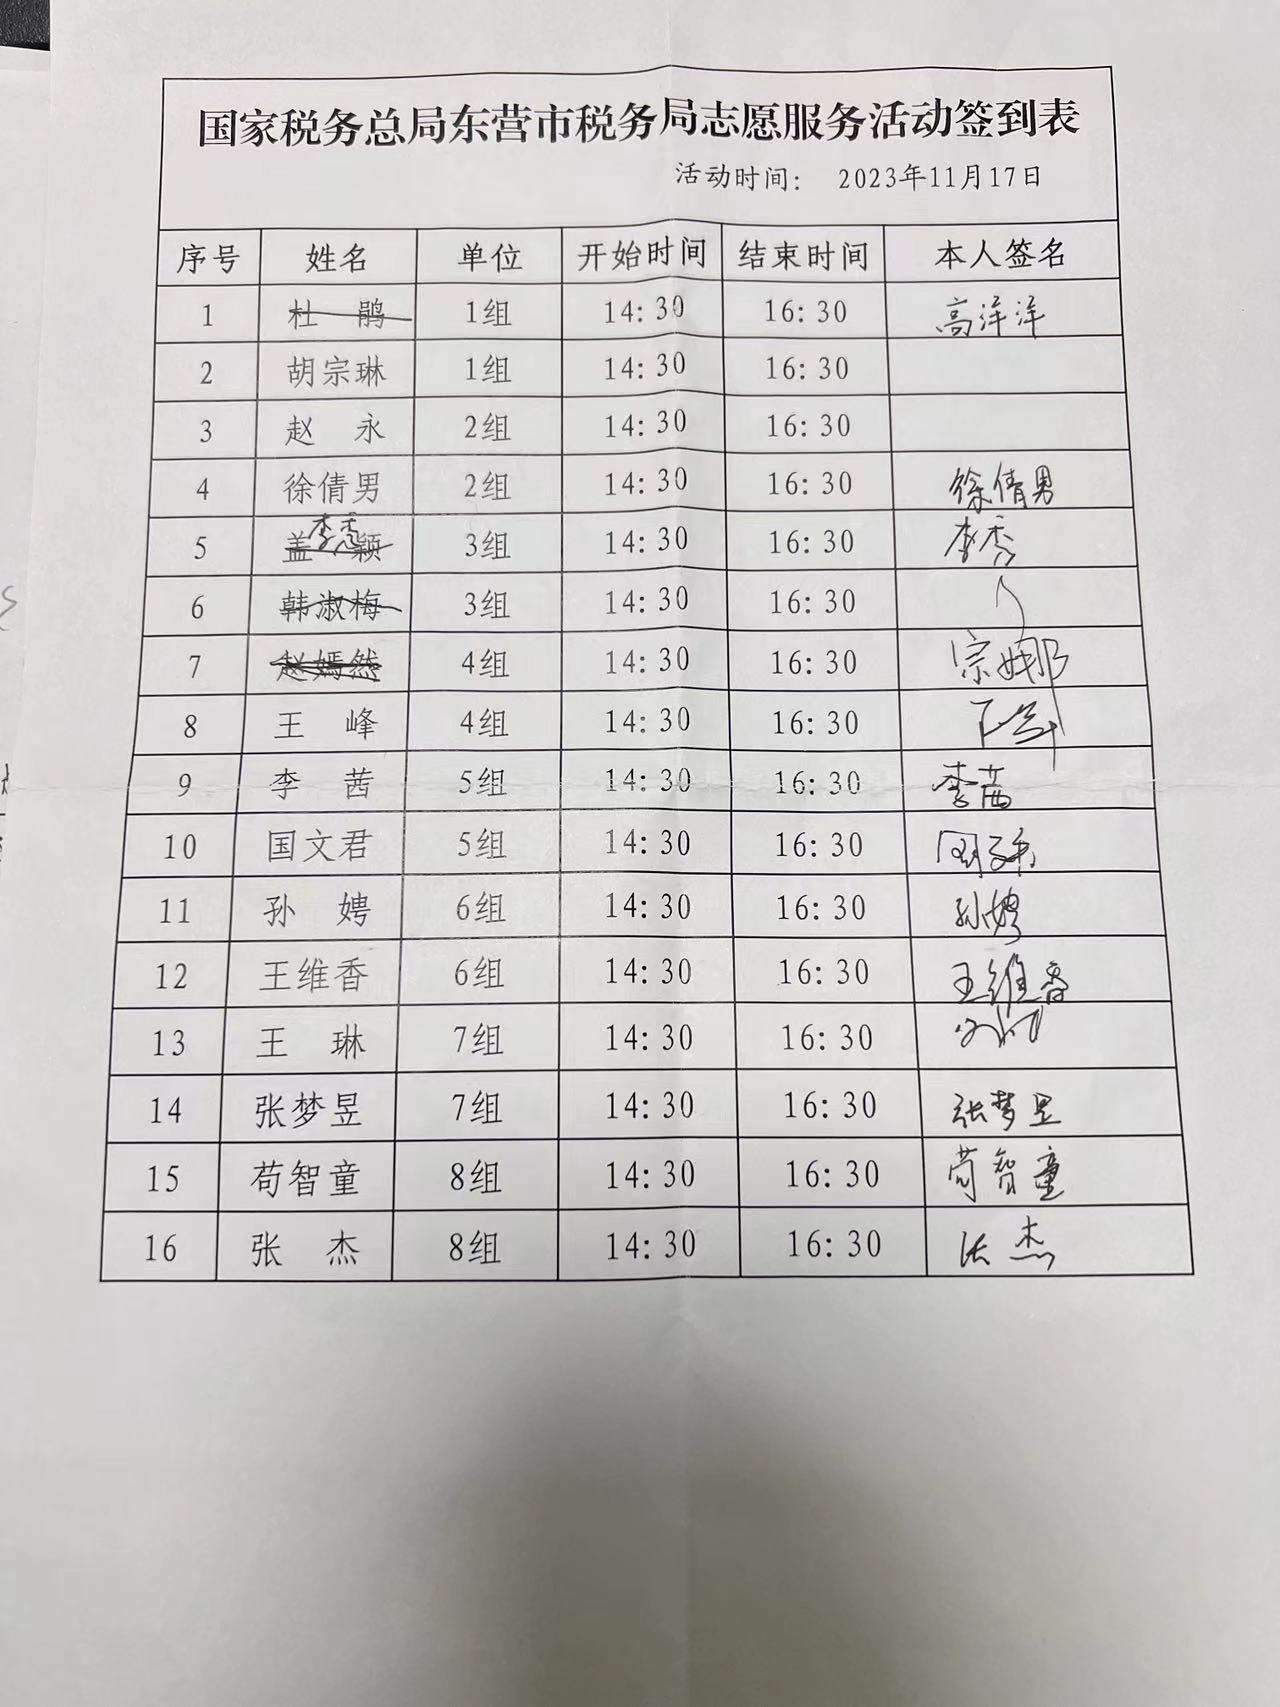 国家税务总局东营市税务局志愿服务活动签到表
活动时间： 2023年11月17日
序号 姓名 单位 开始时间 结束时间 本人签名
1 杜 鹃 1组 14:30 16:30 高洋洋
2 胡宗琳 1组 14:30 16:30
3 赵 永 2组 14:30 16:30
4 徐倩男 2组 14:30 16:30 徐倩男
李秀
5 盖 颖 3组 14:30 16:30 李秀
6 韩淑梅 3组 14:30 16:30
7 赵嫣然 4组 14:30 16:30 宗娜
8 王 峰 4组 14:30 16:30
9 李 茜 5组 14:30 16:30 李茜
10 国文君 5组 14:30 16:30
11 孙 娉 6组 14:30 16:30 孙娉
12 王维香 6组 14:30 16:30 王维香
13 王 琳 7组 14:30 16:30
14 张梦昱 7组 14:30 16:30 张梦昱
15 苟智童 8组 14:30 16:30 苟智童
16 张 杰 8组 14:30 16:30 张杰